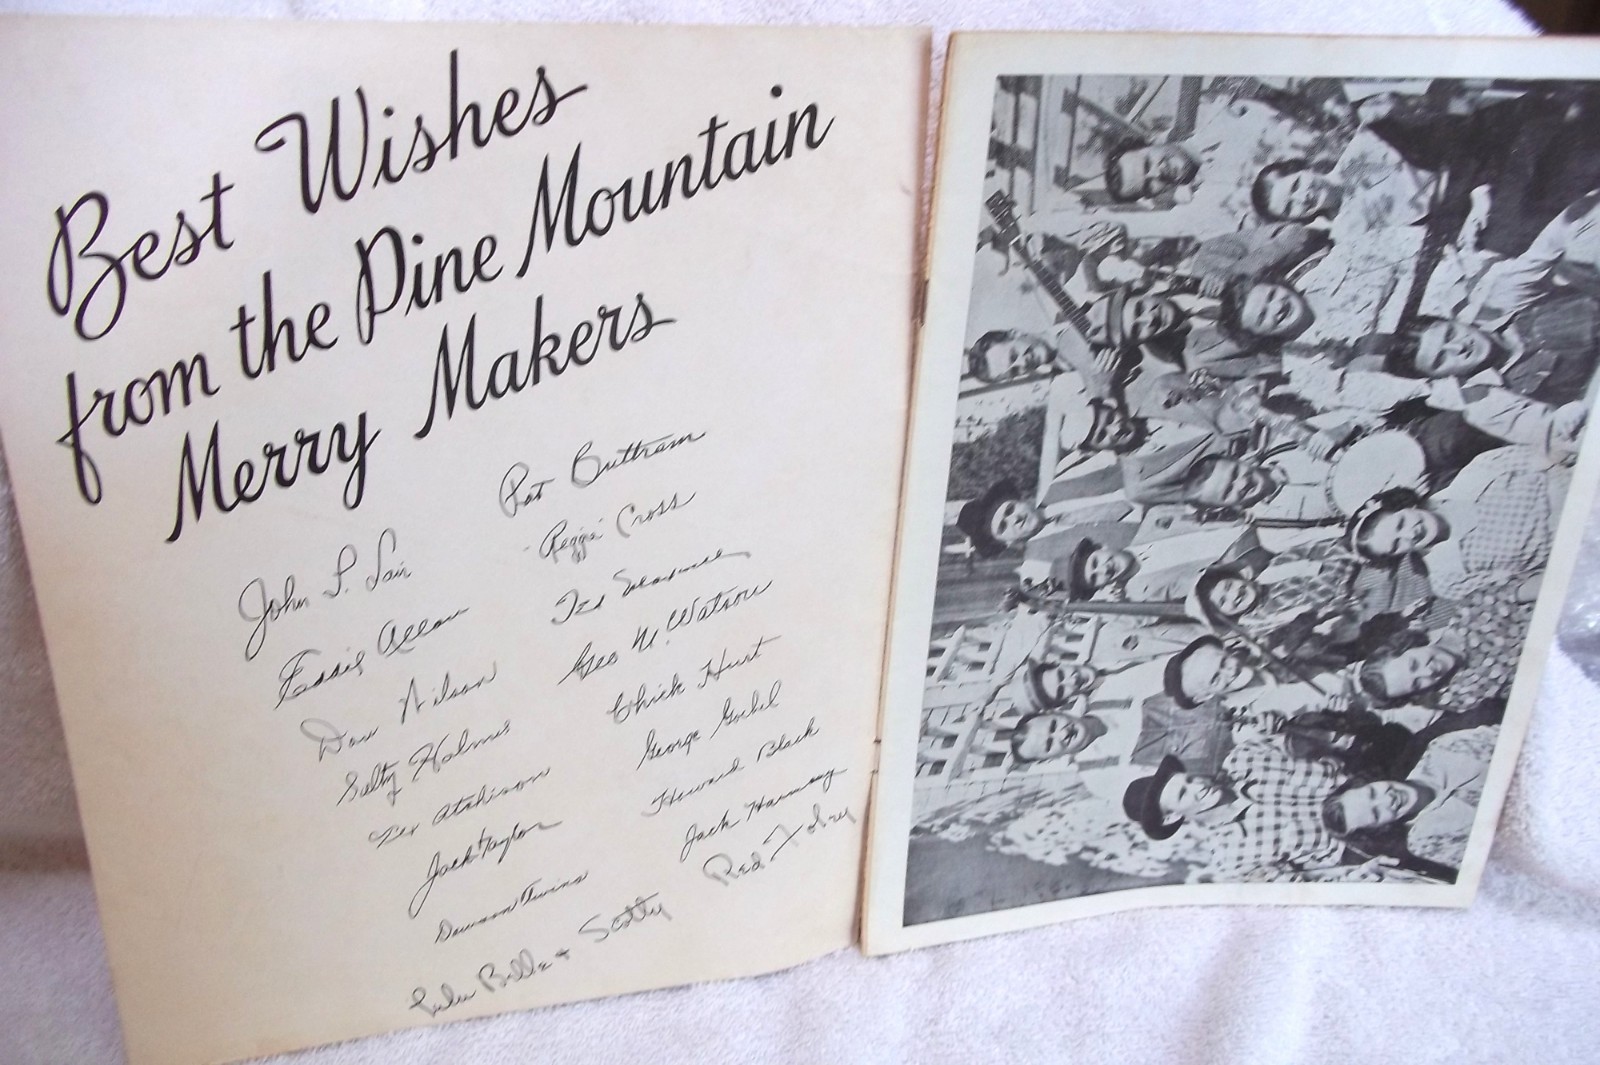 Best Wishes
from the Pine Mountain
Merry Makers
John L. Lair
Eddie Allan
Don Wilson
Salty Holmes
Tex Atchison
Jack Taylor
Twins
Lulu Belle & Scotty
Pat Buttram
Reggie Cross
Geo W. Watson
Chick Hurt
George Goebel
Howard Black
Jack
Red Foley